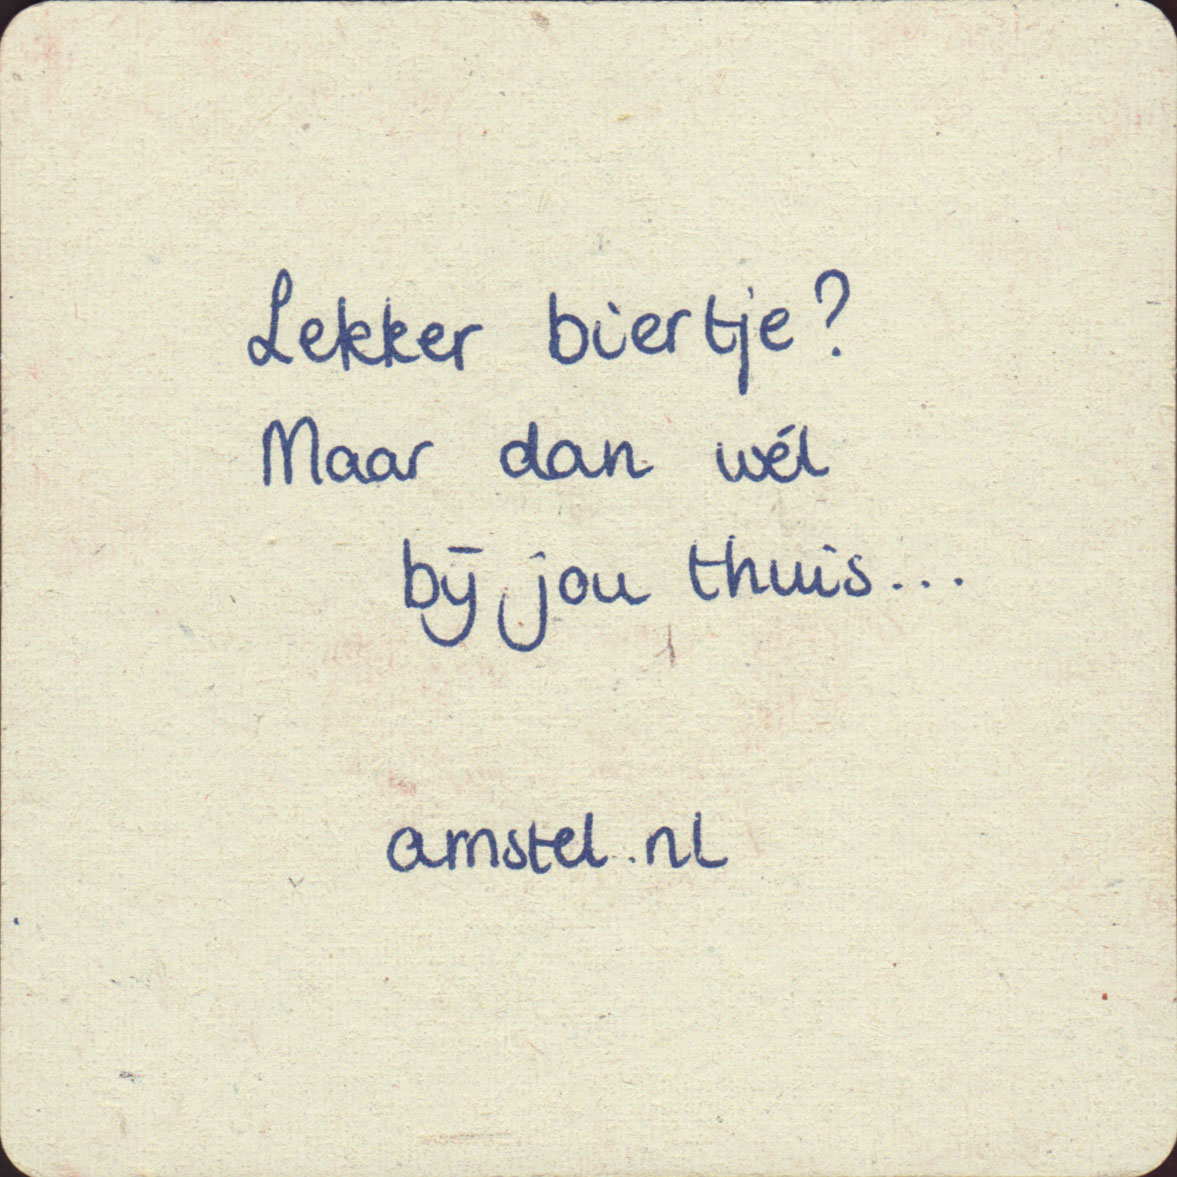 Lekker biertje?
Maar dan wél
bij jou thuis...
amstel.nl